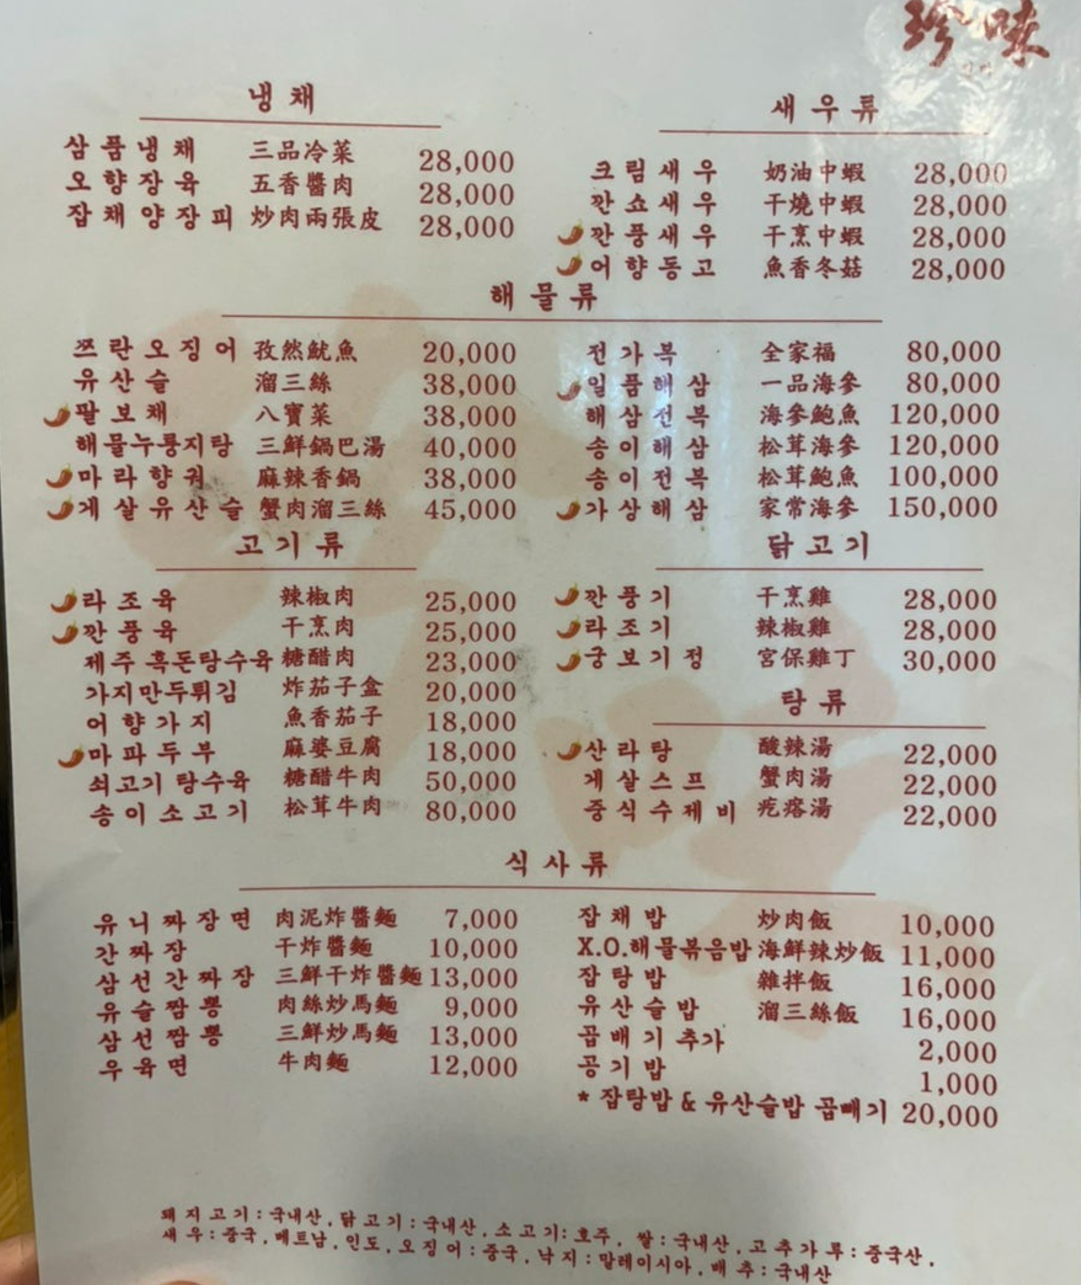 珍味
냉채
삼품냉채 三品冷菜 28,000
오향장육 五香醬肉 28,000
잡채양장피 炒肉兩張皮 28,000
새우류
크림새우 奶油中蝦 28,000
깐쇼새우 干燒中蝦 28,000
깐풍새우 干烹中蝦 28,000
어향동고 魚香冬菇 28,000
해물류
쯔란오징어 孜然魷魚 20,000
유산슬 溜三絲 38,000
팔보채 八寶菜 38,000
해물누룽지탕 三鮮鍋巴湯 40,000
마라향궈 麻辣香鍋 38,000
게살유산슬 蟹肉溜三絲 45,000
전가복 全家福 80,000
일품해삼 一品海參 80,000
해삼전복 海參鮑魚 120,000
송이해삼 松茸海參 120,000
송이전복 松茸鮑魚 100,000
가상해삼 家常海參 150,000
고기류
라조육 辣椒肉 25,000
깐풍육 干烹肉 25,000
제주흑돈탕수육 糖醋肉 23,000
가지만두튀김 炸茄子盒 20,000
어향가지 魚香茄子 18,000
마파두부 麻婆豆腐 18,000
쇠고기 탕수육 糖醋牛肉 50,000
송이소고기 松茸牛肉 80,000
닭고기
깐풍기 干烹雞 28,000
라조기 辣椒雞 28,000
궁보기정 宮保雞丁 30,000
탕류
산라탕 酸辣湯 22,000
게살스프 蟹肉湯 22,000
중식수제비 疙瘩湯 22,000
식사류
유니짜장면 肉泥炸醬麵 7,000
간짜장 干炸醬麵 10,000
삼선간짜장 三鮮干炸醬麵 13,000
유슬짬뽕 肉絲炒馬麵 9,000
삼선짬뽕 三鮮炒馬麵 13,000
우육면 牛肉麵 12,000
잡채밥 炒肉飯 10,000
X.O.해물볶음밥 海鮮辣炒飯 11,000
잡탕밥 雜拌飯 16,000
유산슬밥 溜三絲飯 16,000
곱배기추가 2,000
공기밥 1,000
* 잡탕밥 & 유산슬밥 곱빼기 20,000
돼지고기 : 국내산, 닭고기 : 국내산, 소고기 : 호주, 쌀 : 국내산, 고추가루 : 중국산,
새우 : 중국, 베트남, 인도, 오징어 : 중국, 낙지 : 말레이시아, 배추 : 국내산